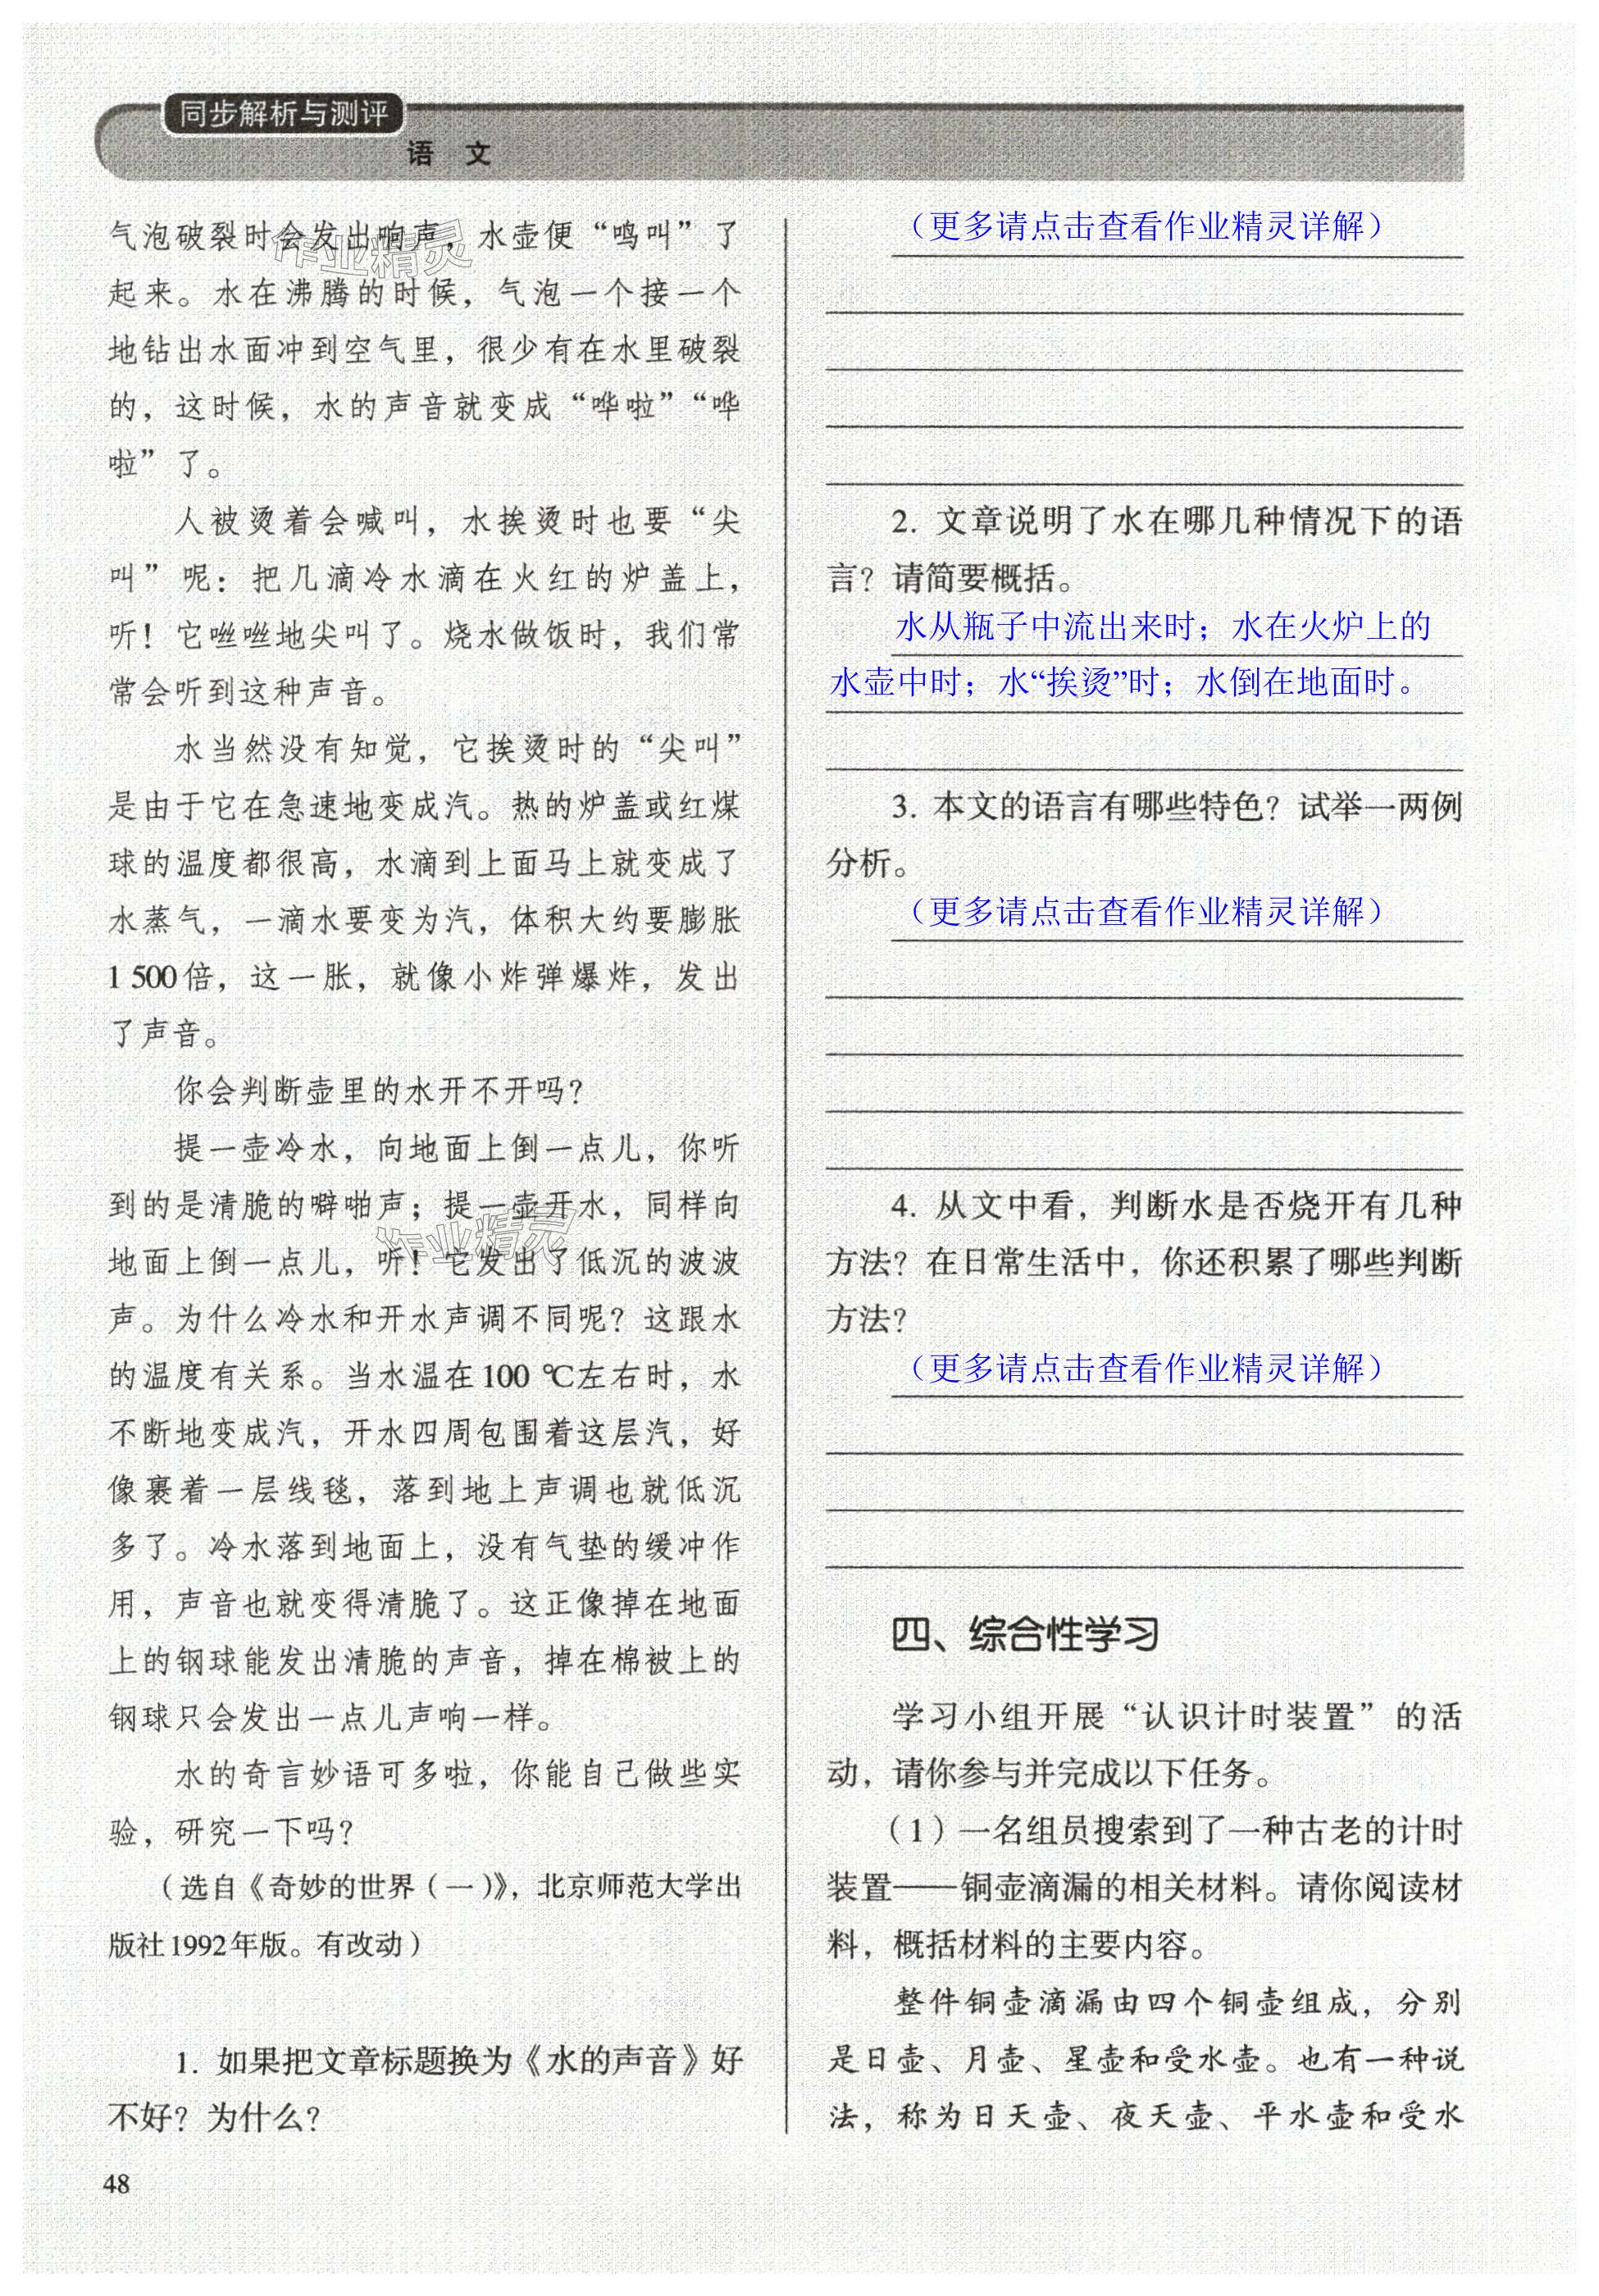 同步解析与测评
语 文
气泡破裂时会发出响声，水壶便“鸣叫”了
起来。水在沸腾的时候，气泡一个接一个
地钻出水面冲到空气里，很少有在水里破裂
的，这时候，水的声音就变成“哗啦”“哗
啦”了。
人被烫着会喊叫，水挨烫时也要“尖
叫”呢：把几滴冷水滴在火红的炉盖上，
听！它咝咝地尖叫了。烧水做饭时，我们常
常会听到这种声音。
水当然没有知觉，它挨烫时的“尖叫”
是由于它在急速地变成汽。热的炉盖或红煤
球的温度都很高，水滴到上面马上就变成了
水蒸气，一滴水要变为汽，体积大约要膨胀
1 500倍，这一胀，就像小炸弹爆炸，发出
了声音。
你会判断壶里的水开不开吗？
提一壶冷水，向地面上倒一点儿，你听
到的是清脆的噼啪声；提一壶开水，同样向
地面上倒一点儿，听！它发出了低沉的波波
声。为什么冷水和开水声调不同呢？这跟水
的温度有关系。当水温在100 ℃左右时，水
不断地变成汽，开水四周包围着这层汽，好
像裹着一层线毯，落到地上声调也就低沉
多了。冷水落到地面上，没有气垫的缓冲作
用，声音也就变得清脆了。这正像掉在地面
上的钢球能发出清脆的声音，掉在棉被上的
钢球只会发出一点儿声响一样。
水的奇言妙语可多啦，你能自己做些实
验，研究一下吗？
（选自《奇妙的世界（一）》，北京师范大学出
版社1992年版。有改动）
1. 如果把文章标题换为《水的声音》好
不好？为什么？
48
（更多请点击查看作业精灵详解）
2. 文章说明了水在哪几种情况下的语
言？请简要概括。
水从瓶子中流出来时；水在火炉上的
水壶中时；水“挨烫”时；水倒在地面时。
3. 本文的语言有哪些特色？试举一两例
分析。
（更多请点击查看作业精灵详解）
4. 从文中看，判断水是否烧开有几种
方法？在日常生活中，你还积累了哪些判断
方法？
（更多请点击查看作业精灵详解）
四、综合性学习
学习小组开展“认识计时装置”的活
动，请你参与并完成以下任务。
（1）一名组员搜索到了一种古老的计时
装置——铜壶滴漏的相关材料。请你阅读材
料，概括材料的主要内容。
整件铜壶滴漏由四个铜壶组成，分别
是日壶、月壶、星壶和受水壶。也有一种说
法，称为日天壶、夜天壶、平水壶和受水
作业精灵
作业精灵